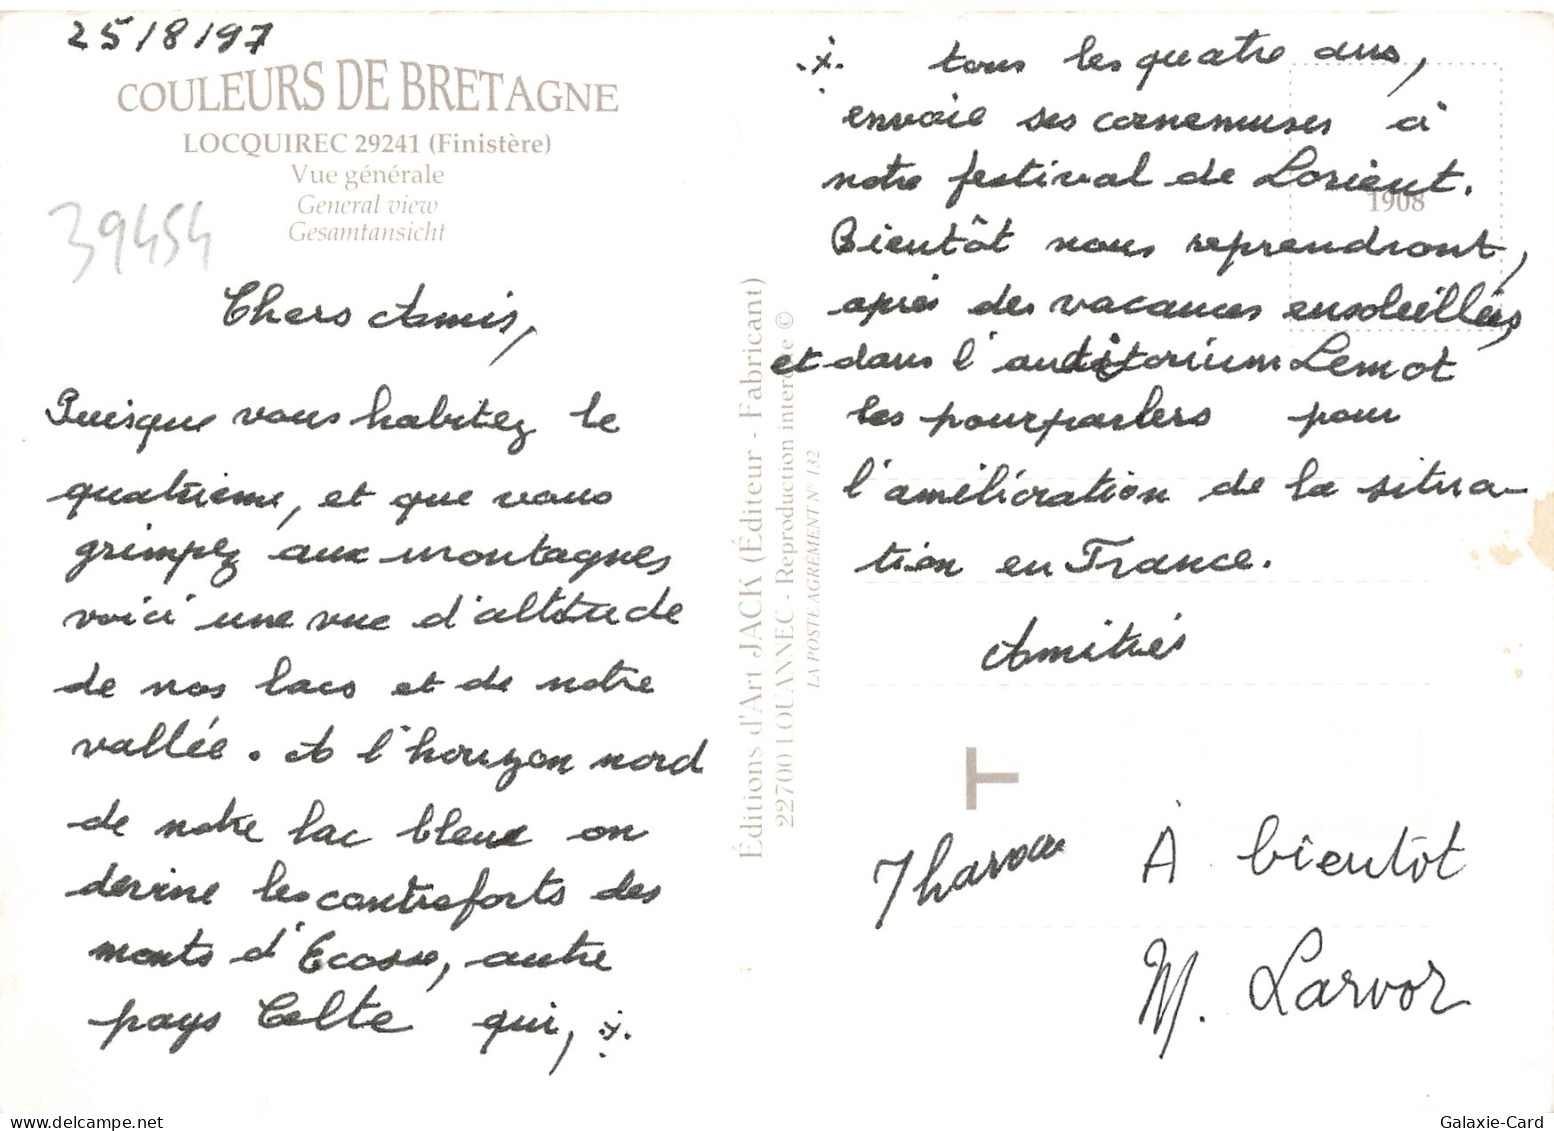 25/8/97
COULEURS DE BRETAGNE
LOCQUIREC 29241 (Finistère)
Vue générale
General view
Gesamtansicht
39454
Chers Amis,
Puisque vous habitez le
quatrième, et que vous
grimpez aux montagnes
voici une vue d'altitude
de nos lacs et de notre
vallée. A l'horizon nord
de notre lac bleu on
devine les contreforts des
monts d'Ecosse, autre
pays Celte qui, .x.
Éditions d'Art JACK (Éditeur - Fabricant)
22700 LOUANNEC - Reproduction interdite ©
LA POSTE AGRÉMENT N° 132
.x. tous les quatre ans,
envoie ses cornemuses à
notre festival de Lorient.
1908
Bientôt nous reprendront,
après des vacances ensoleillées,
et dans l'auditorium Lemot
les pourparlers pour
l'amélioration de la situa-
tion en France.
Amitiés
T
À bientôt
M. Larvor
Galaxie-Card